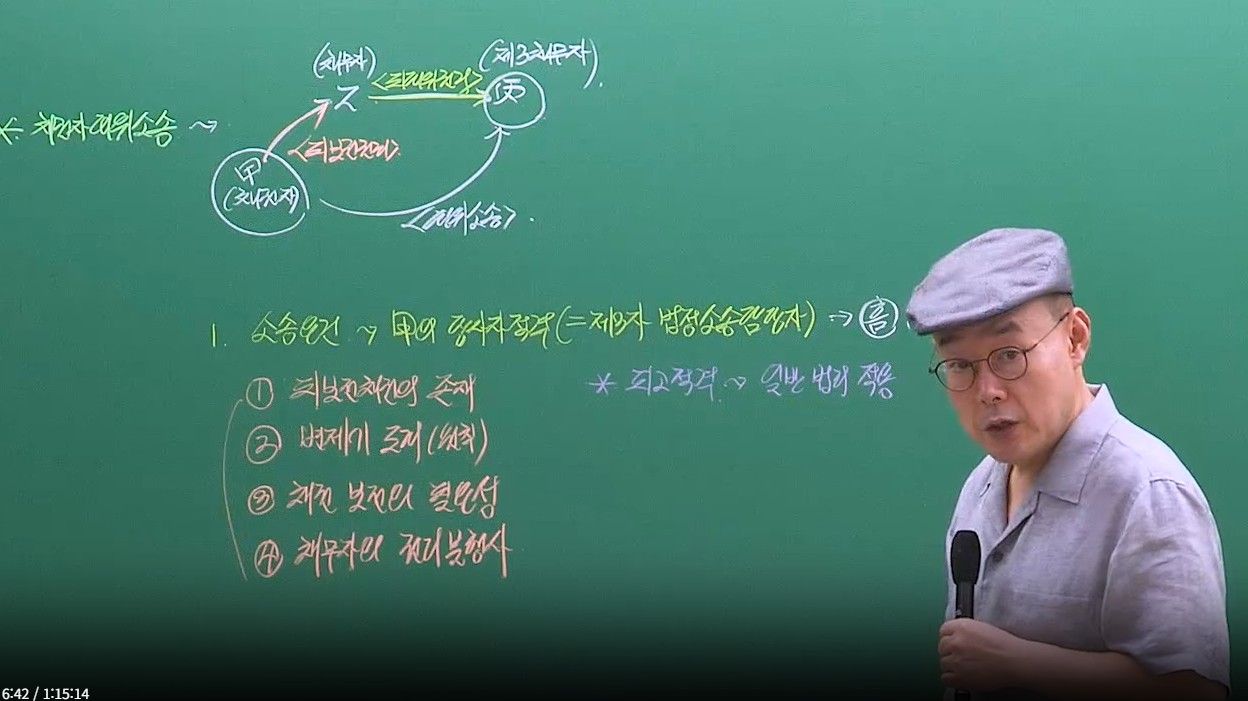 (채무자)
(제3채무자)
乙 <피대위권리> 丙
* 채권자대위소송 ~>
<피보전권리>
甲
(채권자)
<대위소송>
1. 소송요건 ~> 甲의 당사자적격(=제3자 법정소송담당자) ~> 흠
① 피보전채권의 존재
* 피고적격 ~> 일반 법리 적용
② 변제기 도래(원칙)
③ 채권 보전의 필요성
④ 채무자의 권리불행사
6:42 / 1:15:14